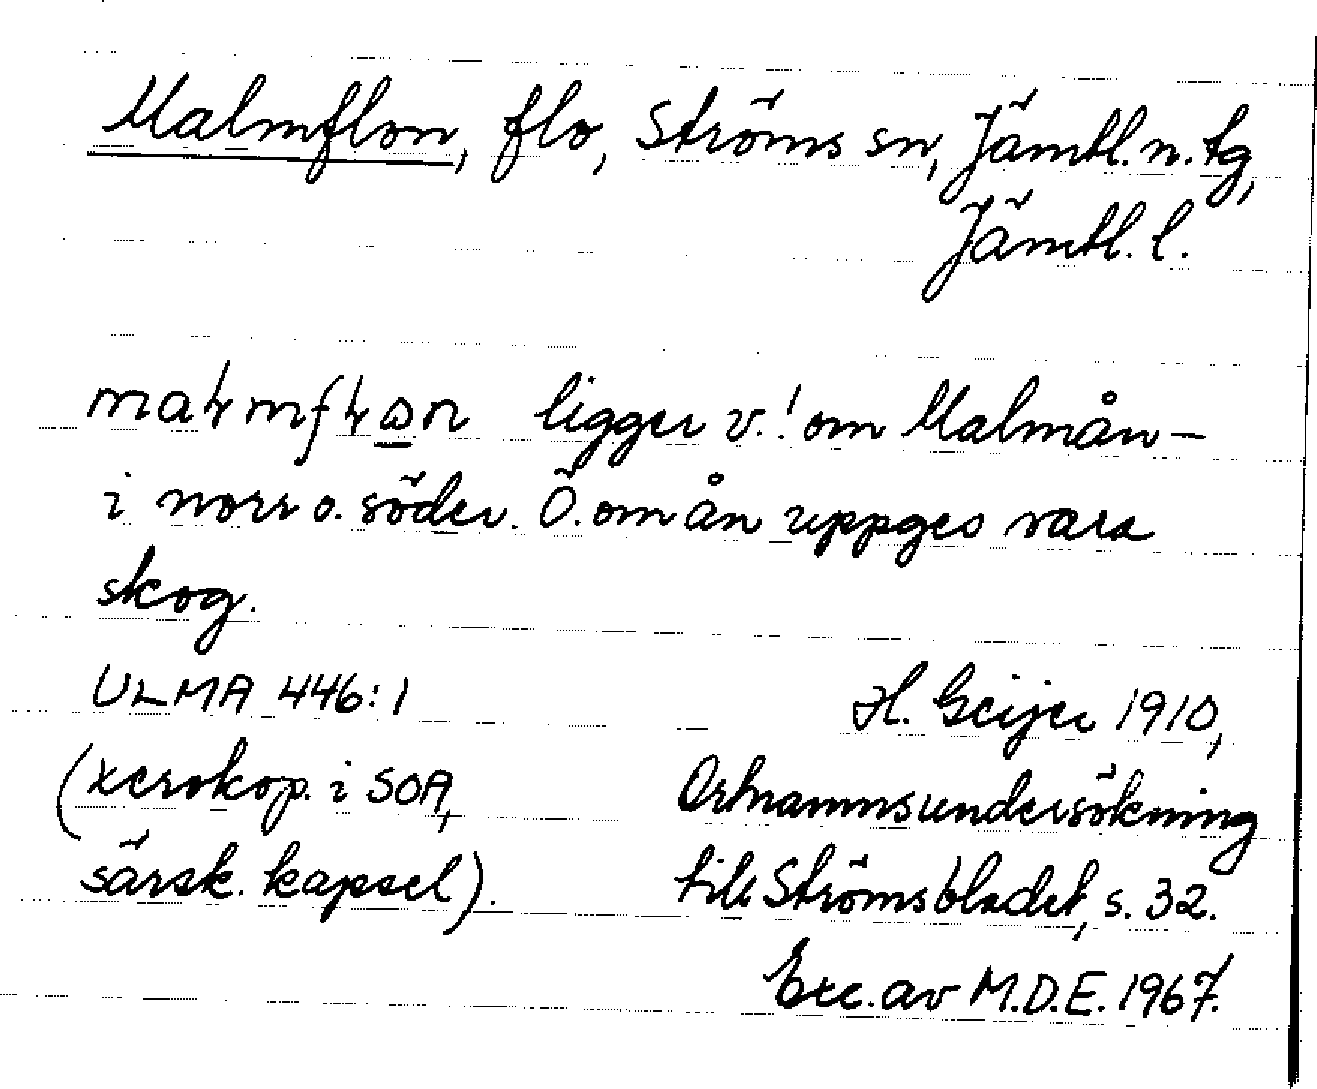 Malmflon, flo, Ströms sn, Jämtl. n. tg,
Jämtl. l.
ligger v.! om Malmån –
i norr o. söder. Ö. om ån uppges vara
skog.
ULMA 446:1 H. Geijer 1910,
(xerokop. i SOA, Ortnamnsundersökning
särsk. kapsel). till Strömsbladet, s. 32.
Exc. av M.D.E. 1967.